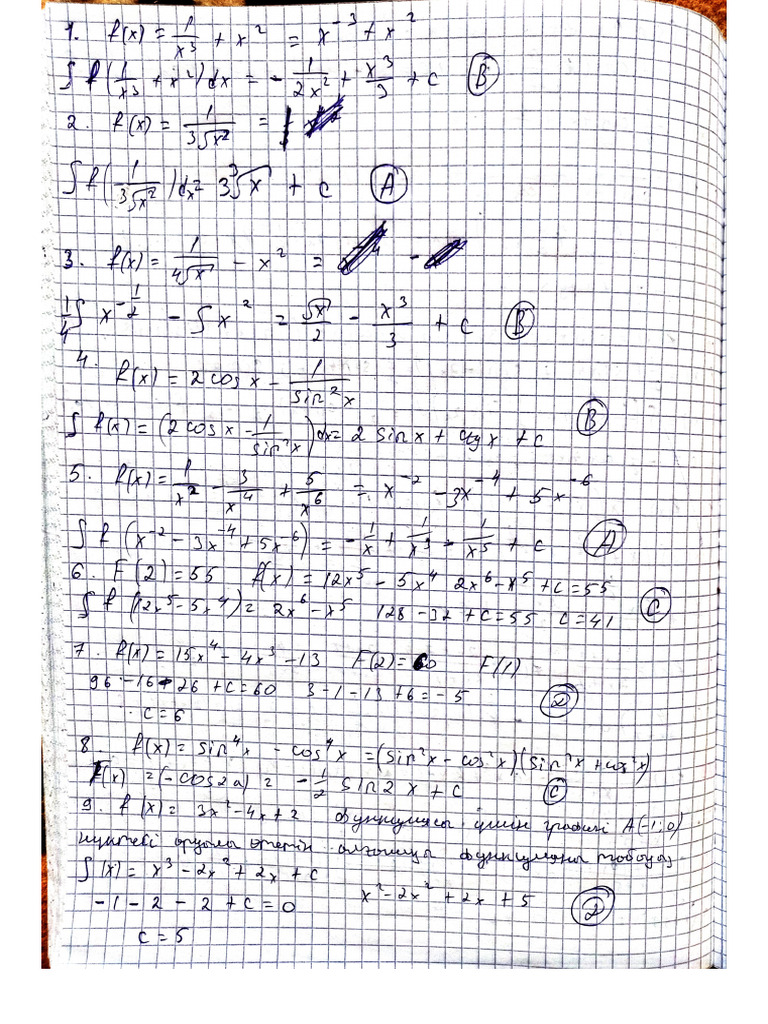 1. f(x) = 1/x³ + x² = x⁻³ + x²
∫ f(1/x³ + x²)dx = - 1/2x² + x³/3 + c (B)
2. f(x) = 1/3√x² =
∫ f(1/3√x²)dx = 3∛x + c (A)
3. f(x) = 1/4√x - x² = -
1/4 ∫ x^(-1/2) - ∫ x² = √x/2 - x³/3 + c (B)
4.
f(x) = 2 cos x - 1/sin²x
∫ f(x) = (2 cos x - 1/sin²x)dx = 2 sin x + ctg x + c (B)
5. f(x) = 1/x² - 3/x⁴ + 5/x⁶ = x⁻² - 3x⁻⁴ + 5x⁻⁶
∫ f(x⁻² - 3x⁻⁴ + 5x⁻⁶) = - 1/x + 1/x³ - 1/x⁵ + c (A)
6. F(2) = 55 f(x) = 12x⁵ - 5x⁴ 2x⁶ - x⁵ + c = 55
∫ f(12x⁵ - 5x⁴) = 2x⁶ - x⁵ 128 - 32 + c = 55 c = 41 (C)
7. f(x) = 15x⁴ - 4x³ - 13 F(2) = 60 F(1)
96 - 16 - 26 + c = 60 3 - 1 - 13 + 6 = - 5 (D)
c = 6
8. f(x) = sin⁴x - cos⁴x = (sin²x - cos²x)(sin²x + cos²x)
F(x) = (- cos2a) = - 1/2 sin 2x + c (C)
9. f(x) = 3x² - 4x + 2 функциясы үшін графигі A(-1; 0)
нүктесі арқылы өтетін алғашқы функцияны табыңыз
∫(x) = x³ - 2x² + 2x + c
-1 - 2 - 2 + c = 0 x³ - 2x² + 2x + 5 (D)
c = 5